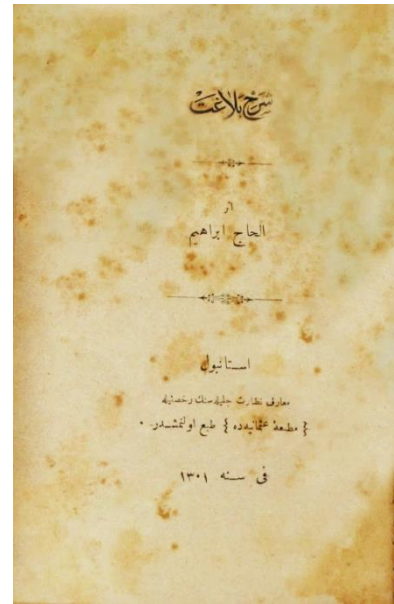 شرح بلاغت
اثر
الحاج ابراهيم
استانبول
معارف نظارت جليله سنك رخصتيله
﴿ مطبعۀ عثمانيه ده ﴾ طبع اولنمشدر .
فى سنه ١٣٠١